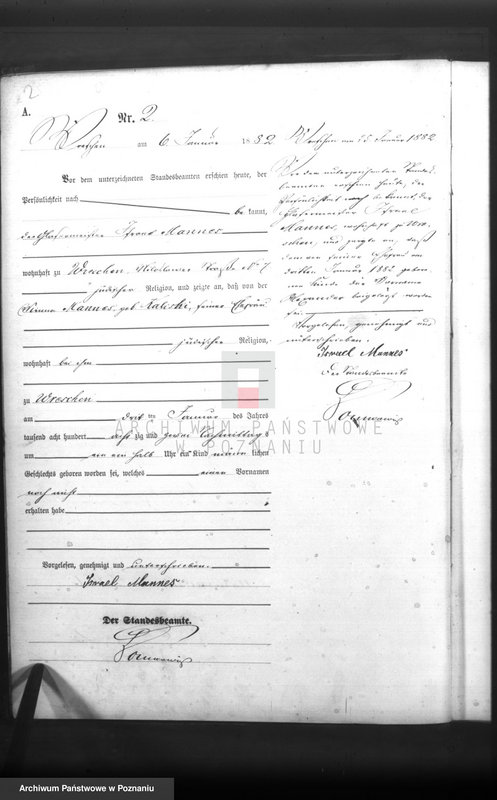 2
A.
Nr. 2.
Wreschen am 6 Januar 1882
Vor dem unterzeichneten Standesbeamten erschien heute, der
Persönlichkeit nach
be kannt,
der Glasermeister Israel Mannes
wohnhaft zu Wreschen, Straße No 7
jüdischer Religion, und zeigte an, daß von der
Mannes, geb Kaliski, seiner Ehefrau
jüdischer Religion,
wohnhaft bei ihm
zu Wreschen
am dritten Januar des Jahres
tausend acht hundert achtzig und zwei Nachmittags
um ein halb Uhr ein Kind männlichen
Geschlechts geboren worden sei, welches einen Vornamen
noch nicht
erhalten habe
Vorgelesen, genehmigt und unterschrieben.
Israel Mannes
Der Standesbeamte.
Wreschen am 25 Januar 1882
Vor dem unterzeichneten Standes-
beamten erschien heute, der
Persönlichkeit nach bekannt, der
Glasermeister Israel
Mannes, wohnhaft zu Wre-
schen, und zeigte an, daß
dem von seiner Ehefrau am
dritten Januar 1882 gebore-
nen Kinde die Vorname
Alexander beigelegt worden
sei.
Vorgelesen, genehmigt und
unterschrieben.
Israel Mannes
Der Standesbeamte
ARCHIWUM PAŃSTWOWE
W POZNANIU
Archiwum Państwowe w Poznaniu